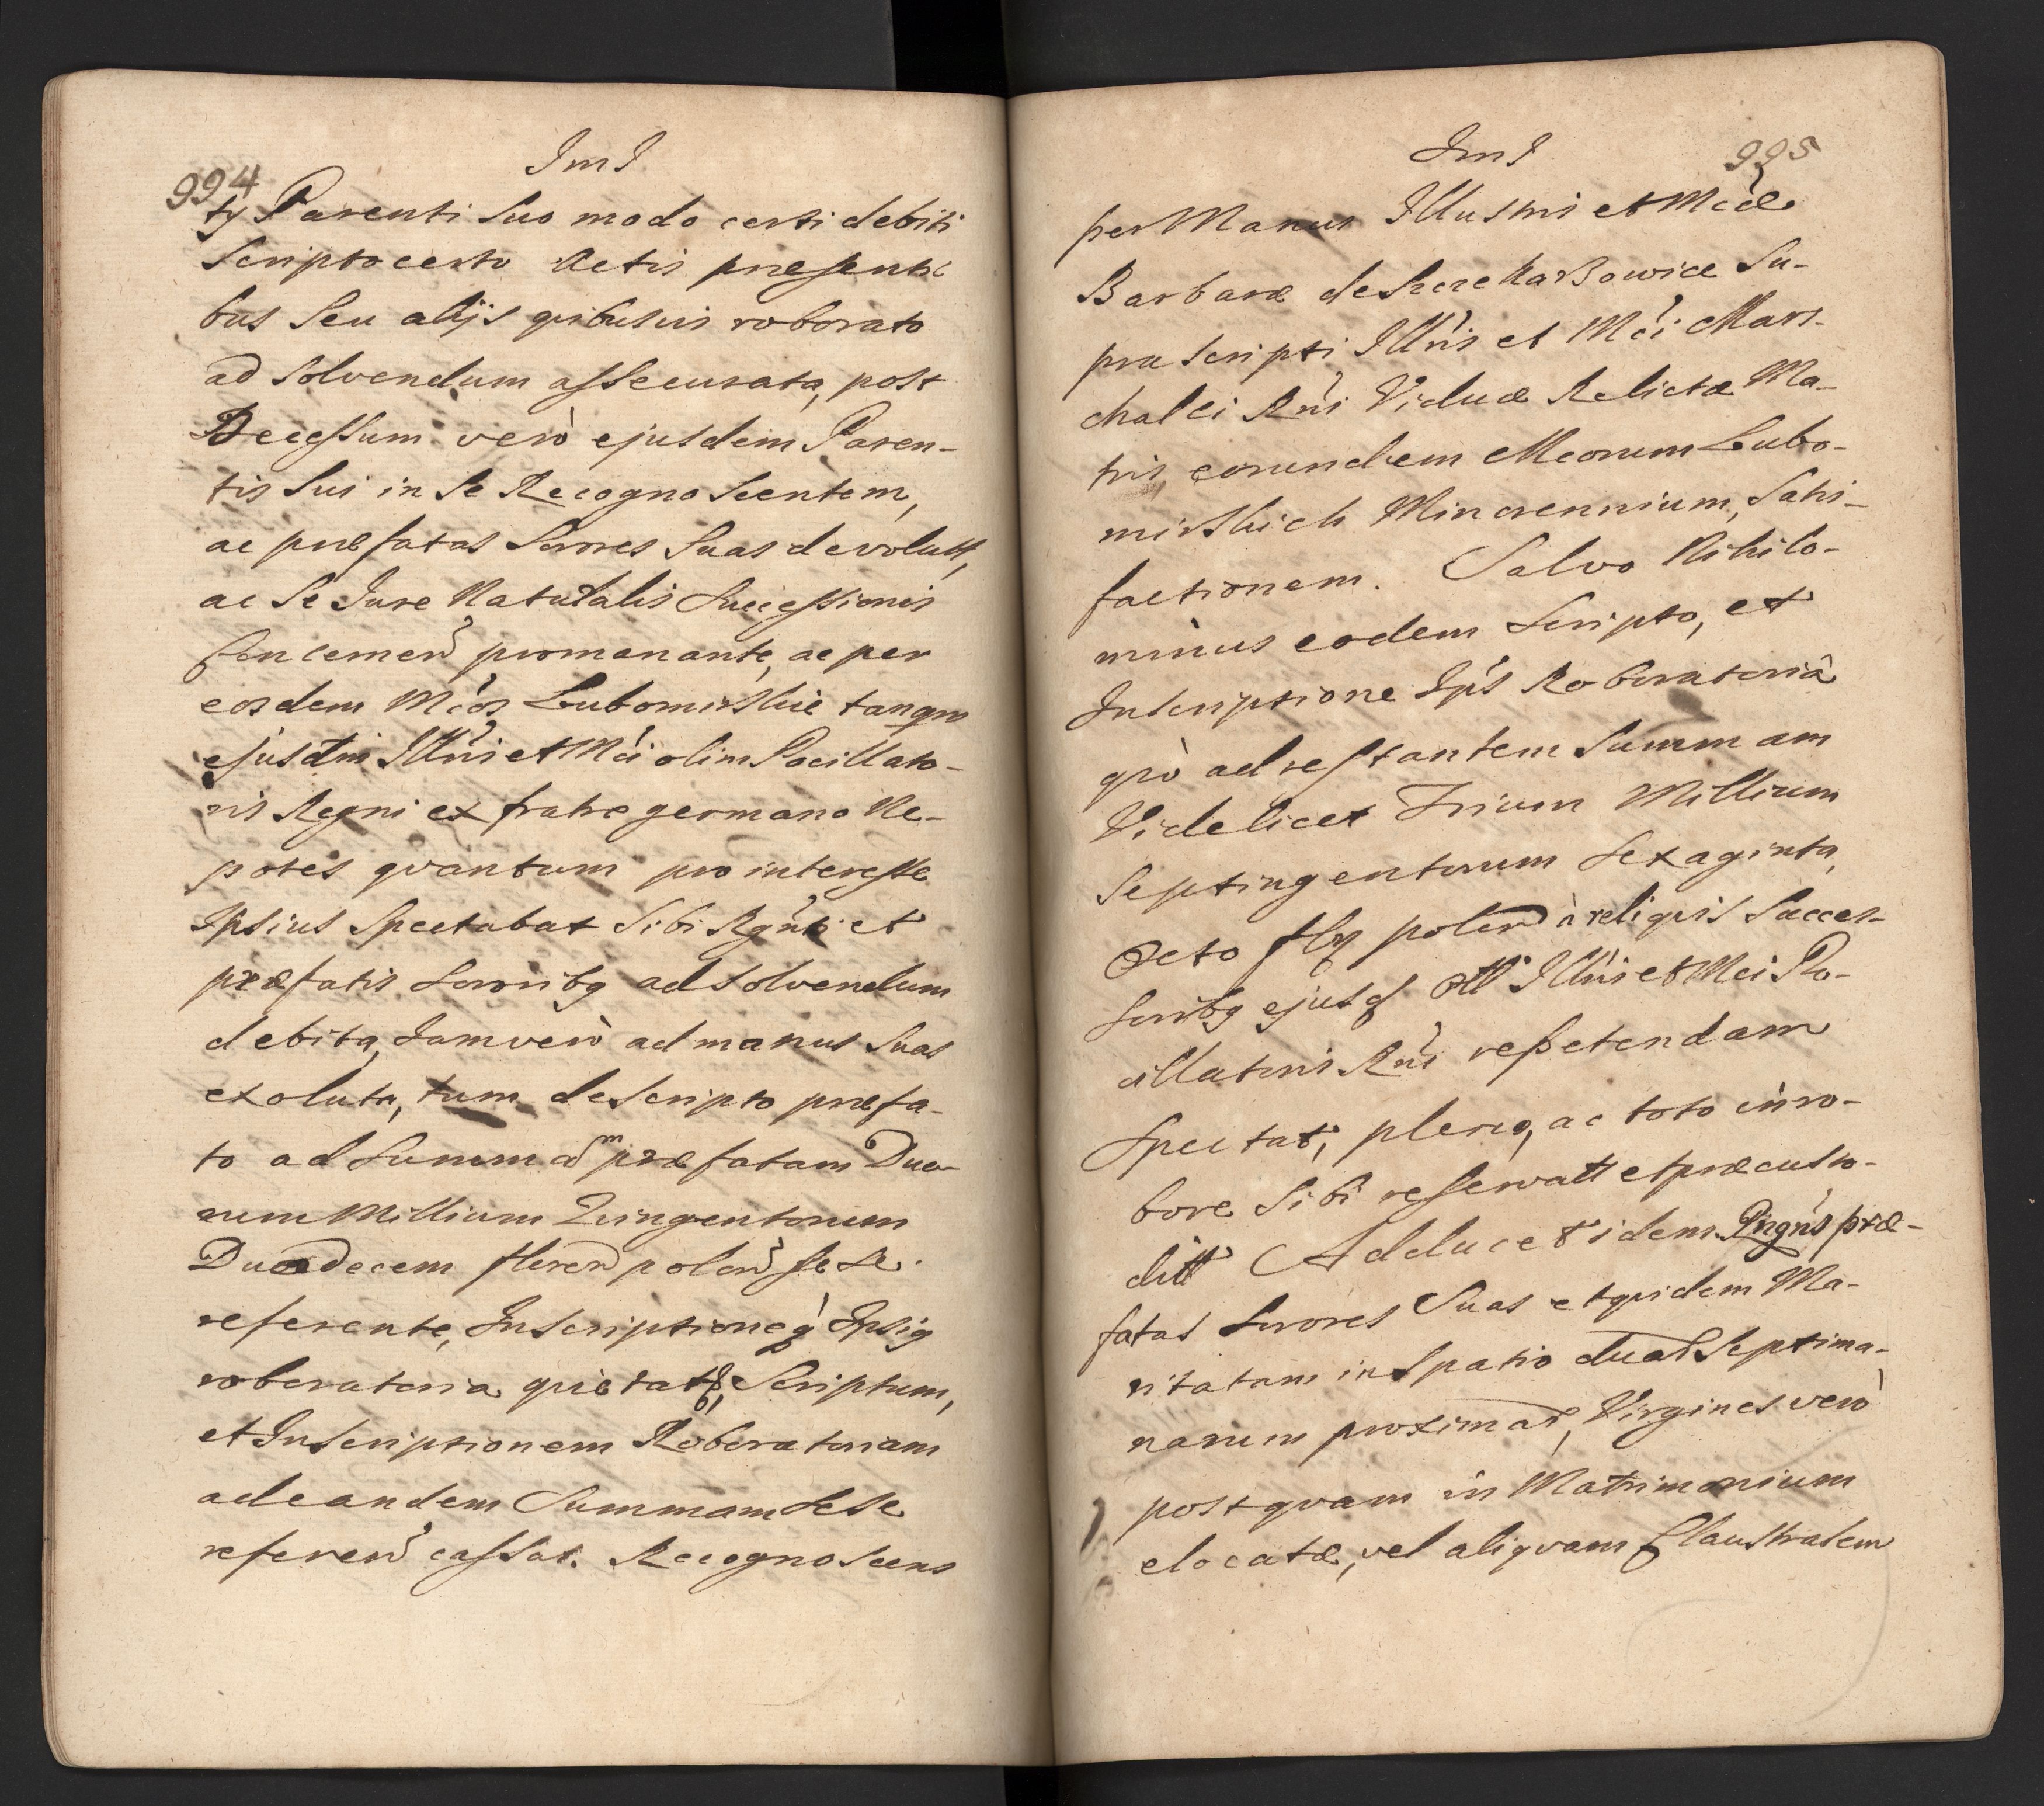 994
JmJ
ty Parenti Suo modo certi debiti
Scripto certo Actis præsenti
bus Seu alijs quibusvis roborato
ad Solvendum assecurata, post
Decessum verò ejusdem Paren-
tis Sui in Se Recognoscentem,
ac præfatas Sorores Suas devolut,
ac Se Jure Naturalis Successionis
concernen promanante, ac per
eosdem Mcos Lubomirskie tanqm
ejusdm Illris et Mci olim Pocillato-
ris Regni ex fratre germano Ne-
potes qvantum pro interesse
Ipsius Spectabat Sibi Rgnti et
præfatis Sororibq ad Solvendum
debita, Jam verò ad manus Suas
exoluta, tum de Scripto præfa-
to ad Summam præfatam Duo-
rum Millium Qvingentorum
Duodecem floren polon se se
referente, Inscriptioneq Ipsiq
roboratoria qvietat, Scriptum,
et Inscriptionem Roboratoriam
ad eandem Summam Sese
referen cassat. Recognoscens
JmJ
995
per Manus Illustris et Mcæ
Barbaræ de Su-
præscripti Illris et Mci Mars-
chalci Rni Viduæ Relictæ Ma-
tris eorundem Mcorum Lubo-
mirskich Minorennium, Satis-
factionem. Salvo Nihilo-
minus eodem Scripto, et
Inscriptione Ips Roboratoriâ
qvò ad restantem Summam
Videlicet Trium Millium
Septingentorum Sexaginta
Octo flq polon à reliqvis Succes-
soribq ejusd olt Illris et Mci Po-
cillatoris Rni repetendam
Spectat, pleno, ac toto in ro-
bore Sibi reservatt et præcusto-
ditt Adducet idem Rngns præ-
fatas Sorores Suas et qvidem Ma-
ritatam in Spatio duar Septima-
narum proximar, Virgines verò
postqvam in Matrimonium
elocatæ, vel aliqvam Claustralem